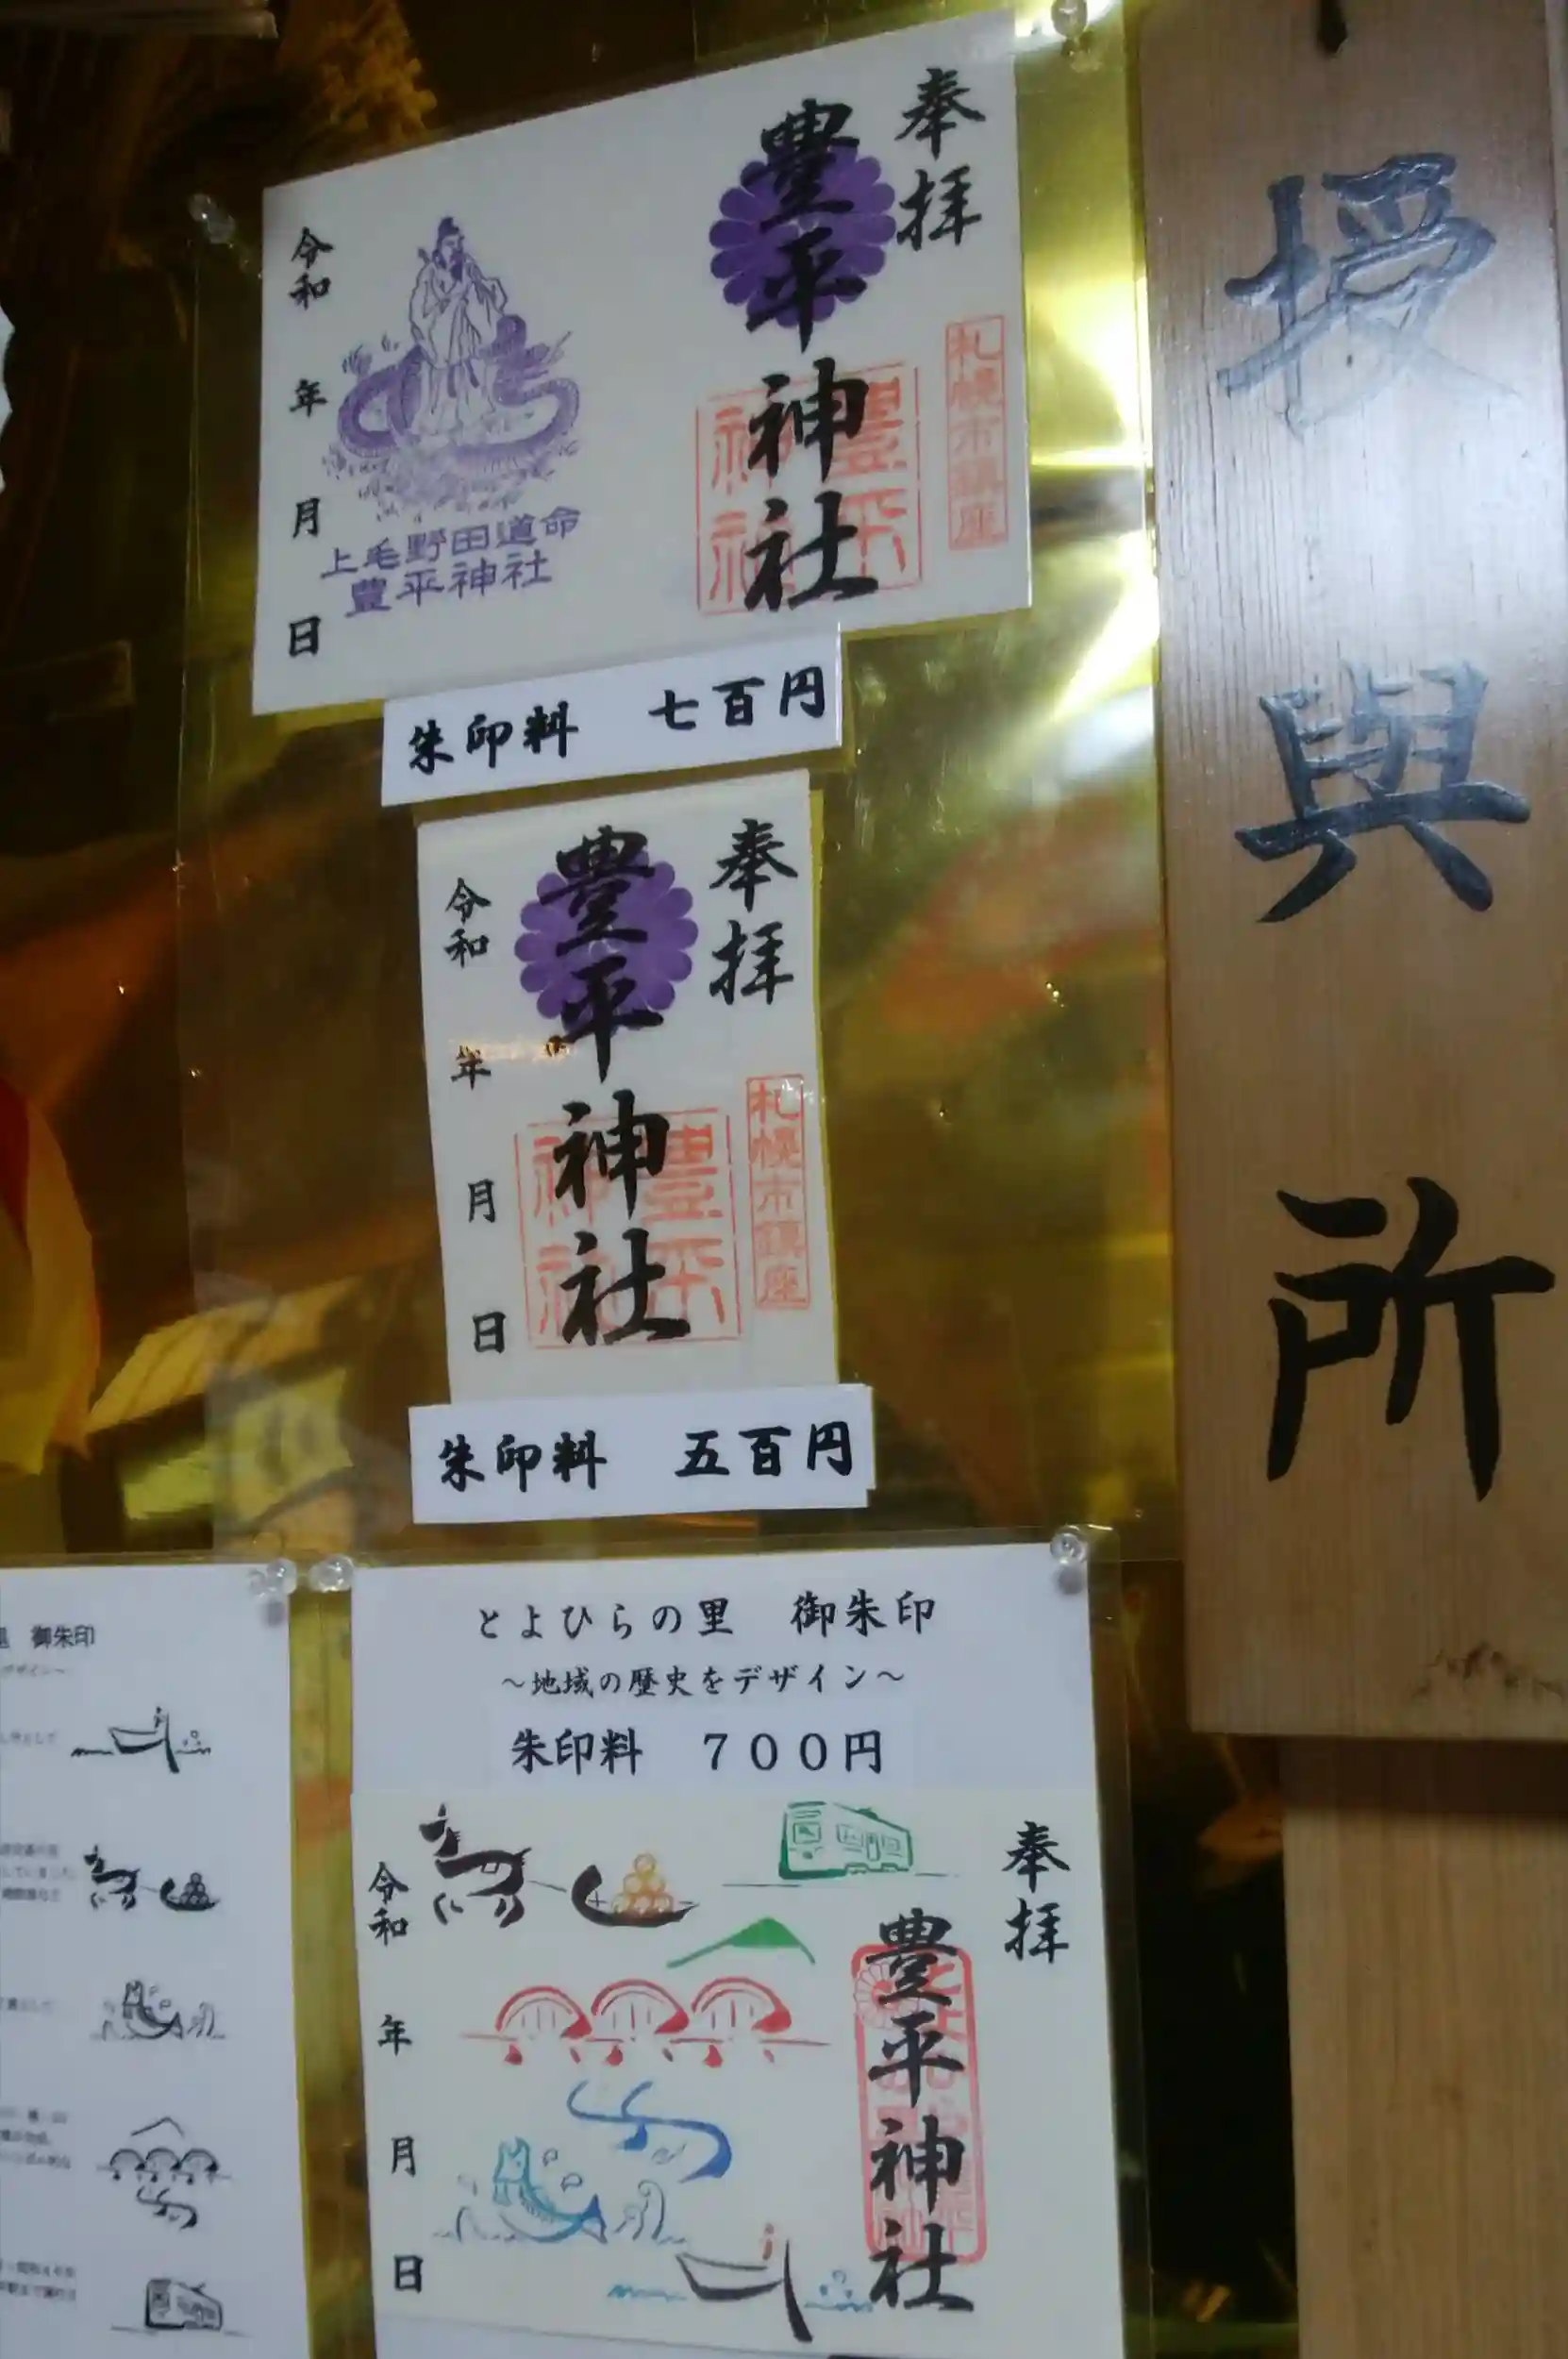 授與所
奉拝
豊平神社
札幌市鎮座
豊平神社
上毛野田道命
豊平神社
令和 年 月 日
朱印料 七百円
奉拝
豊平神社
札幌市鎮座
令和 年 月 日
朱印料 五百円
とよひらの里 御朱印
~地域の歴史をデザイン~
朱印料 700円
奉拝
豊平神社
令和 年 月 日
御朱印